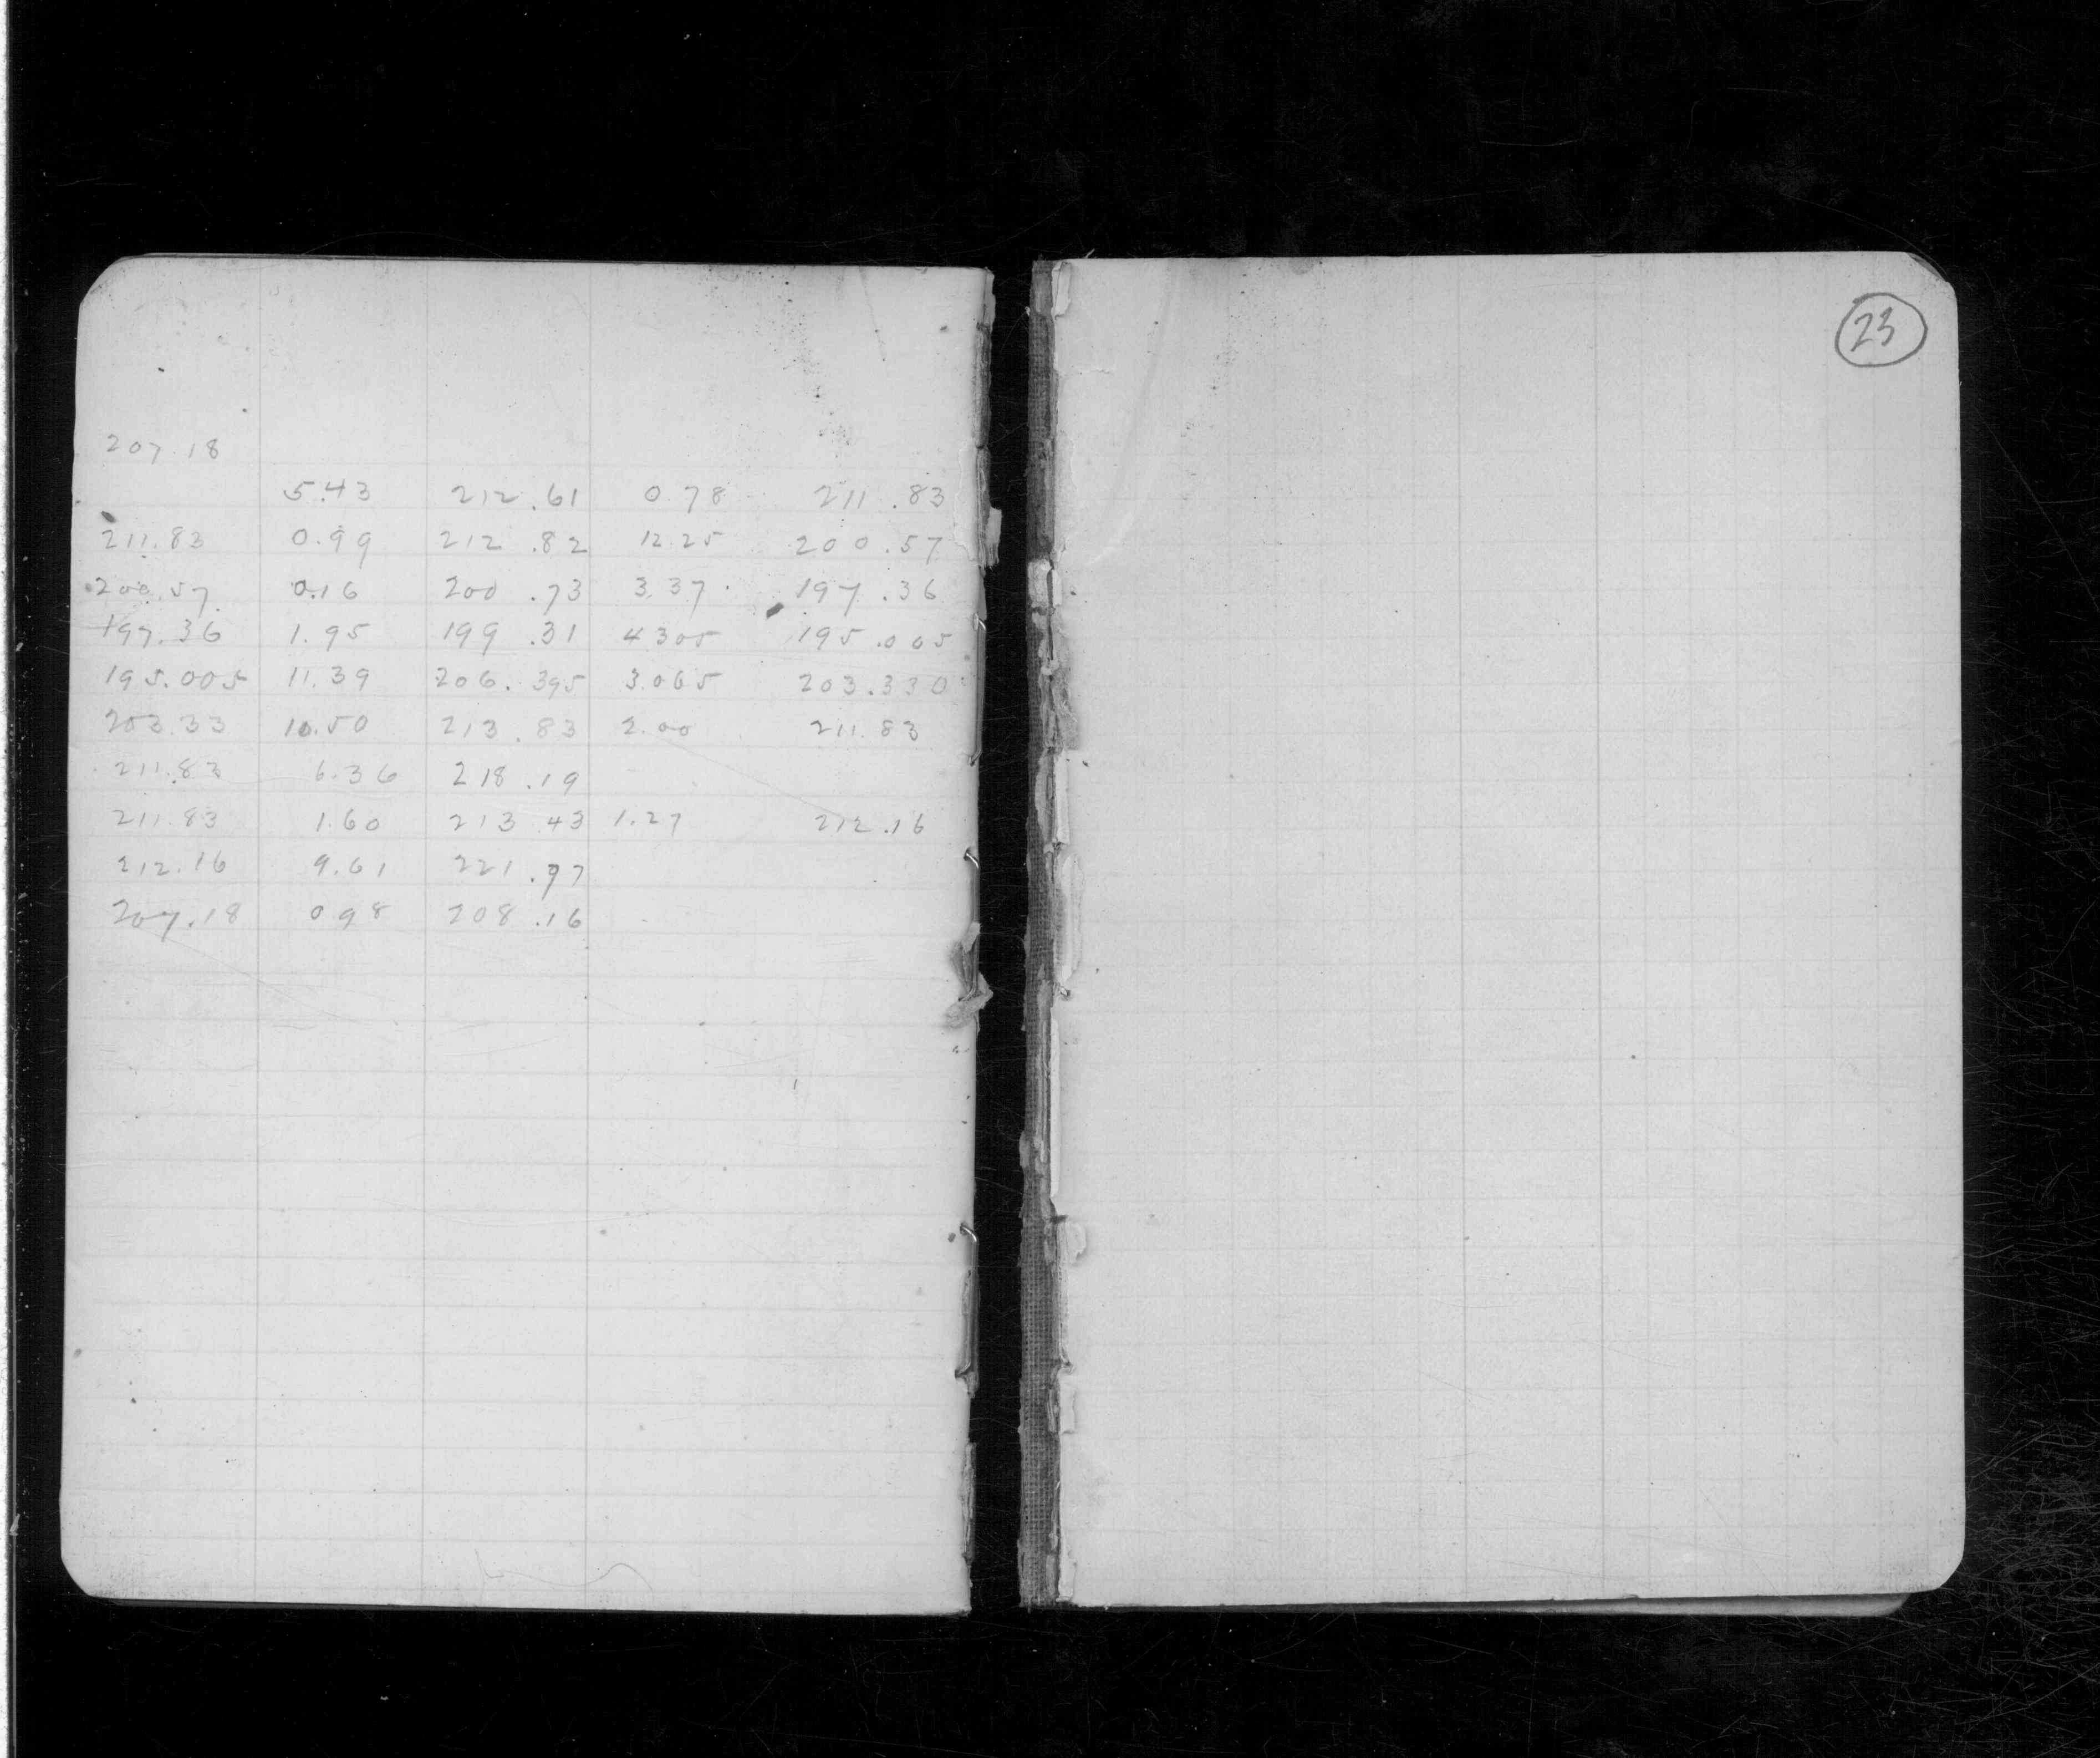 23
207.18
5.43 212.61 0.78 211.83
211.83 0.99 212.82 12.25 200.57
200.57 0.16 200.73 3.37 197.36
197.36 1.95 199.31 4305 195.005
195.005 11.39 206.395 3.065 203.330
203.33 10.50 213.83 2.00 211.83
211.83 6.36 218.19
211.83 1.60 213 43 1.27 212.16
212.16 9.61 221.77
207.18 0 98 208.16